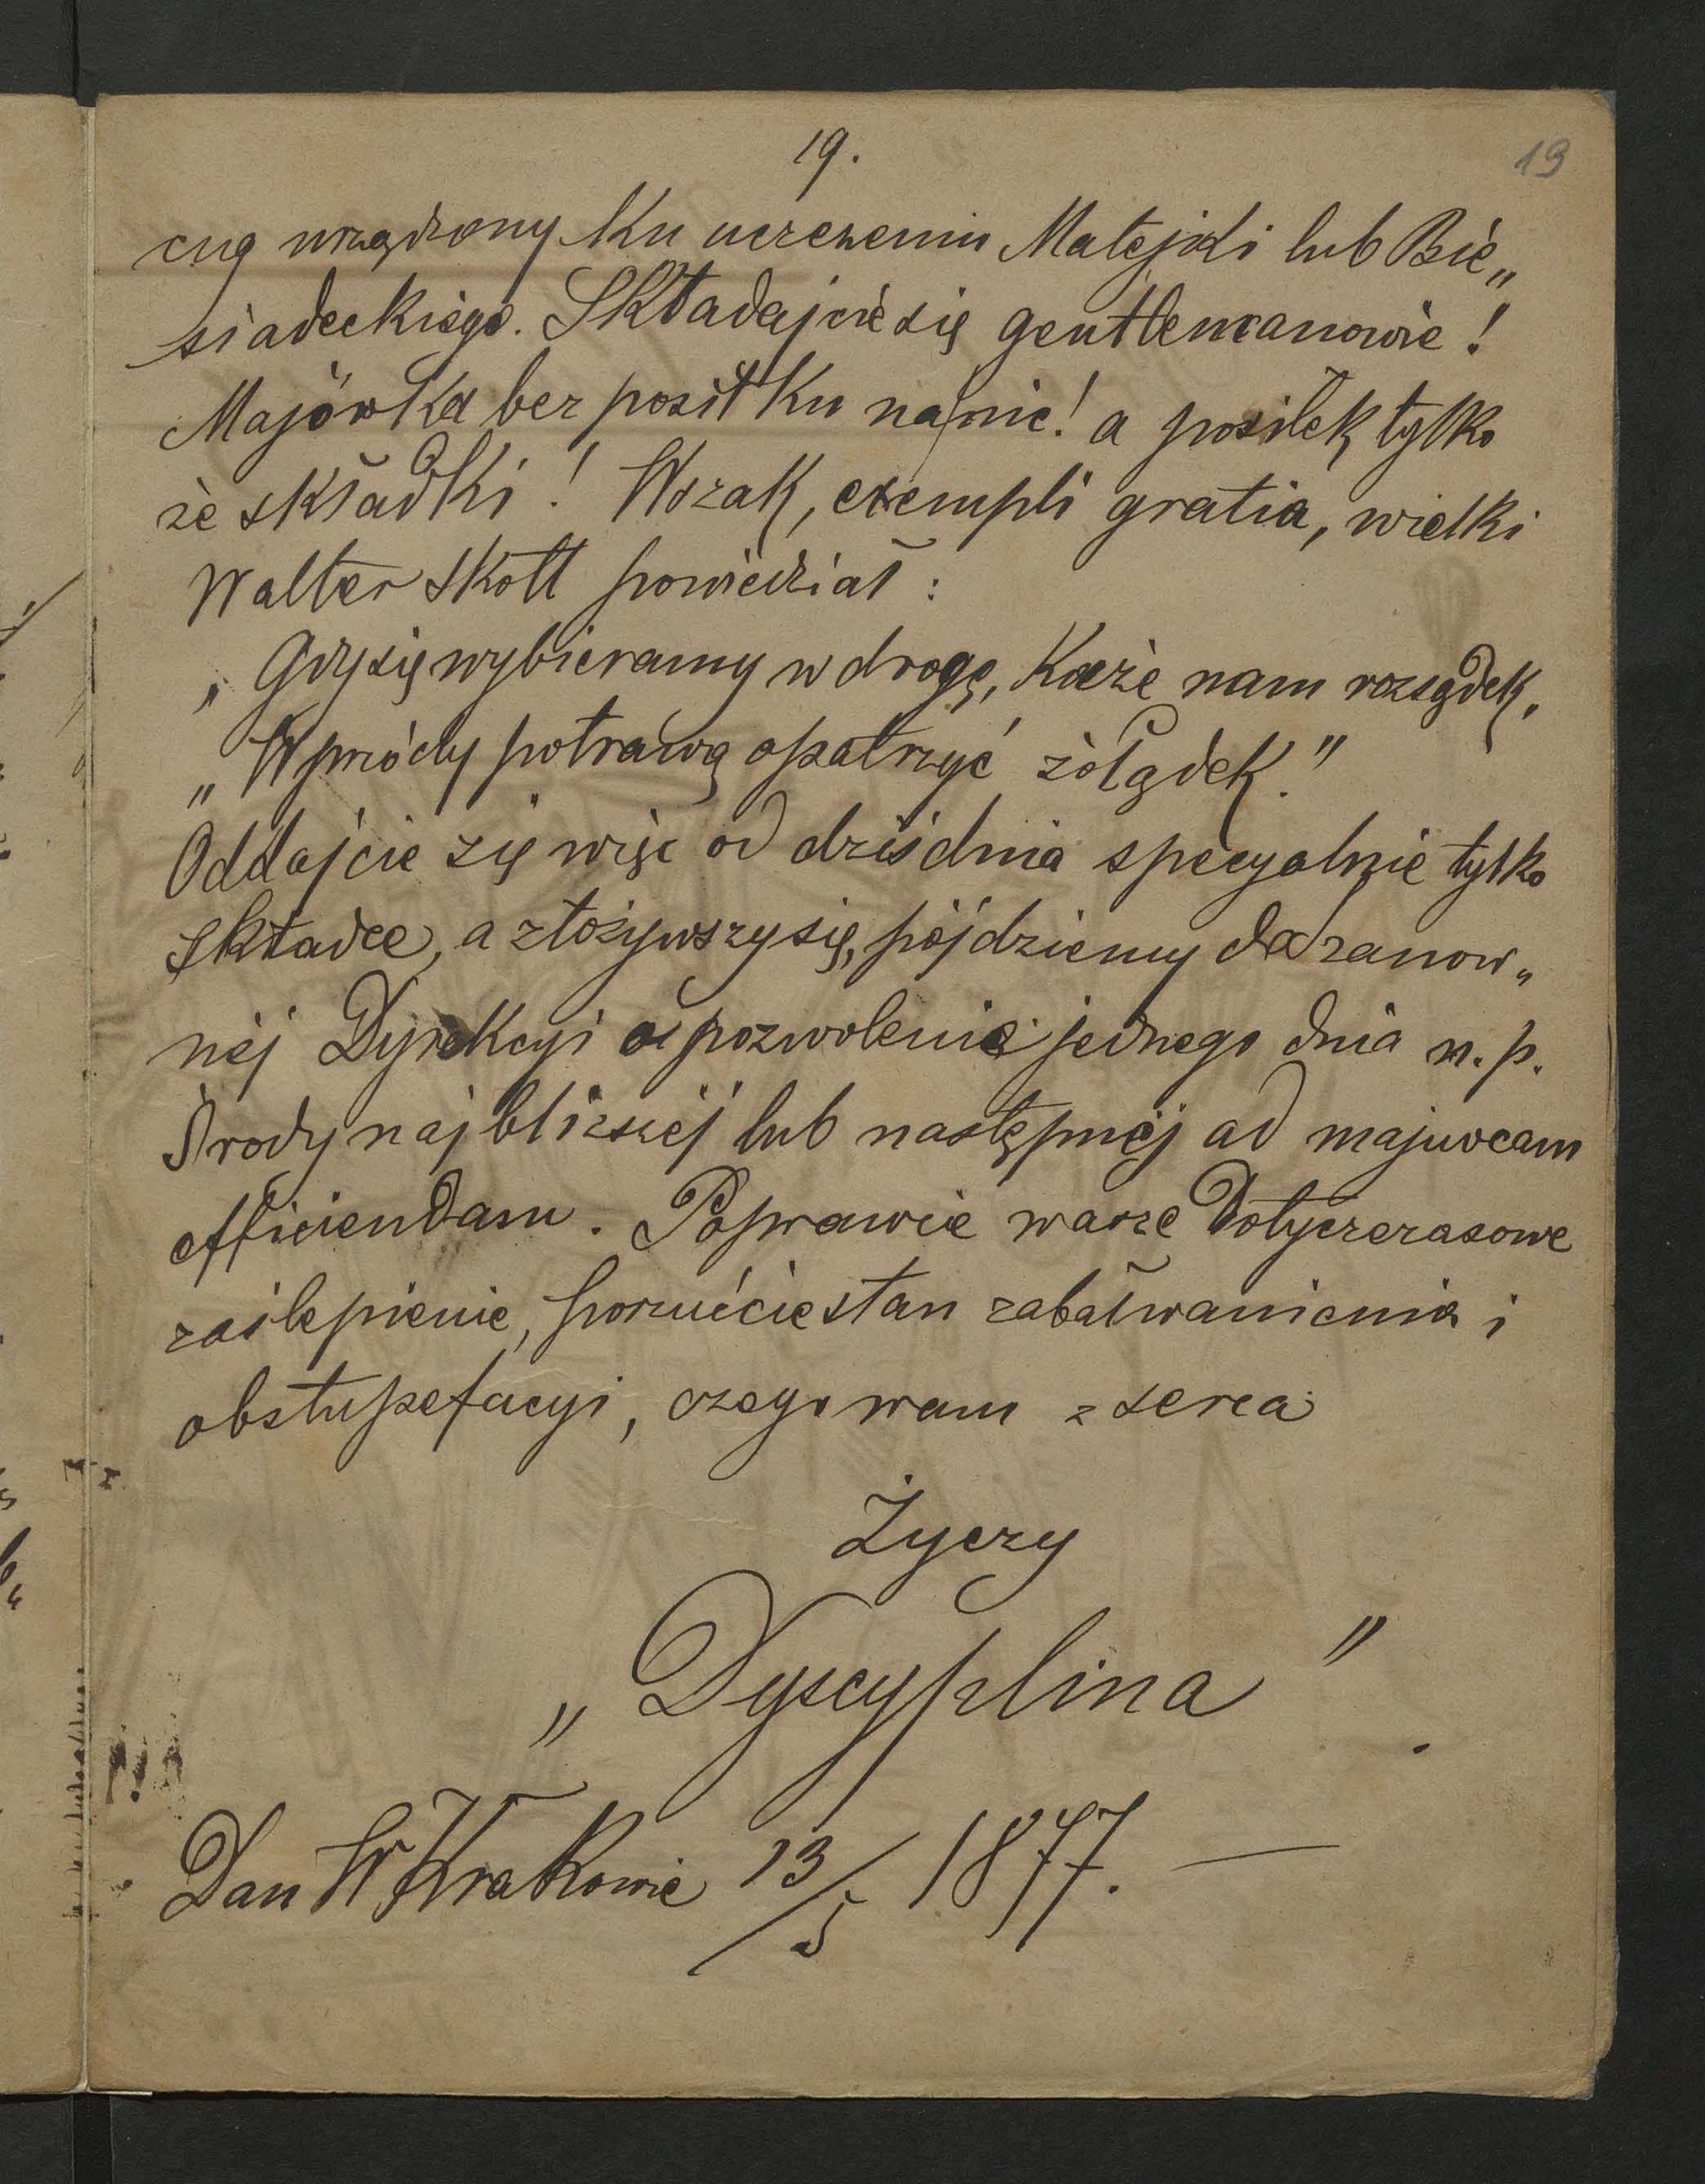 19.
19
cug urządzony ku uczczeniu Matejki lub Bie„
siadeckiego. Składajcie się gentlemanowie!
Majówka bez posiłku na nic! a posiłek tylko
ze składki! Wszak, exempli gratia, wielki
Walter Skott powiedział:
„Gdy się wybieramy w drogę, każe nam rozsądek,
„Wprzódy potrawą opatrzyć żołądek."
Oddajcie się więc od dziś dnia specyalnie tylko
składce, a złożywszy się, pójdziemy do szanow„
néj Dyrekcyi o pozwolenie jednego dnia n. p.
Środy najbliższéj lub następnéj ad majuvcam
efficiendam. Poprawcie wasze dotyczczasowe
zaślepienie, porzućcie stan zabałwanienia i
obstupefacyi, czego wam z serca
Życzy
„Dyscyplina"
Dan W Krakowie 13/5 1877. —